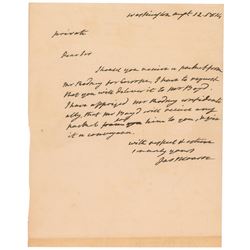 Washington augt 12. 1814
private
Dear Sir
Should you receive a packet from
Mr Rodney for Europe, I have to request
that you will deliver it to Mr Boyd.
I have apprized Mr Rodney confidenti
ally, that Mr Boyd will receive any
packet from him to you, & give
it a conveyance.
with respect & esteem
sincerely yours
Jas Monroe